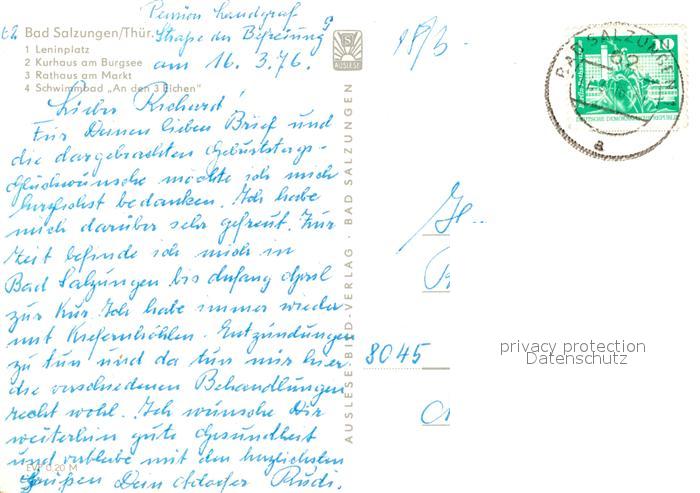 Pension Landgraf
62 Bad Salzungen/Thür. Straße der Befreiung 9
1 Leninplatz
2 Kurhaus am Burgsee
am 16. 3. 76.
3 Rathaus am Markt
4 Schwimmbad „An den 3 Eichen"
Lieber Richard!
Für Deinen lieben Brief und
die dargebrachten Geburtstags-
glückwünsche möchte ich mich
herzlichst bedanken. Ich habe
mich darüber sehr gefreut. Zur
Zeit befinde ich mich in
Bad Salzungen bis Anfang April
zur Kur. Ich habe immer wieder
mit Kiefernhöhlen-Entzündungen
zu tun und da tun mir hier
die verschiedenen Behandlungen
recht wohl. Ich wünsche Dir
weiterhin gute Gesundheit
und verbleibe mit den herzlichsten
Grüßen Dein Rudi.
EVP 0,20 M
AUSLESE
AUSLESE-BILD-VERLAG · BAD SALZUNGEN
BAD SALZUNGEN 1
a
10
DEUTSCHE DEMOKRATISCHE REPUBLIK
8045
privacy protection
Datenschutz